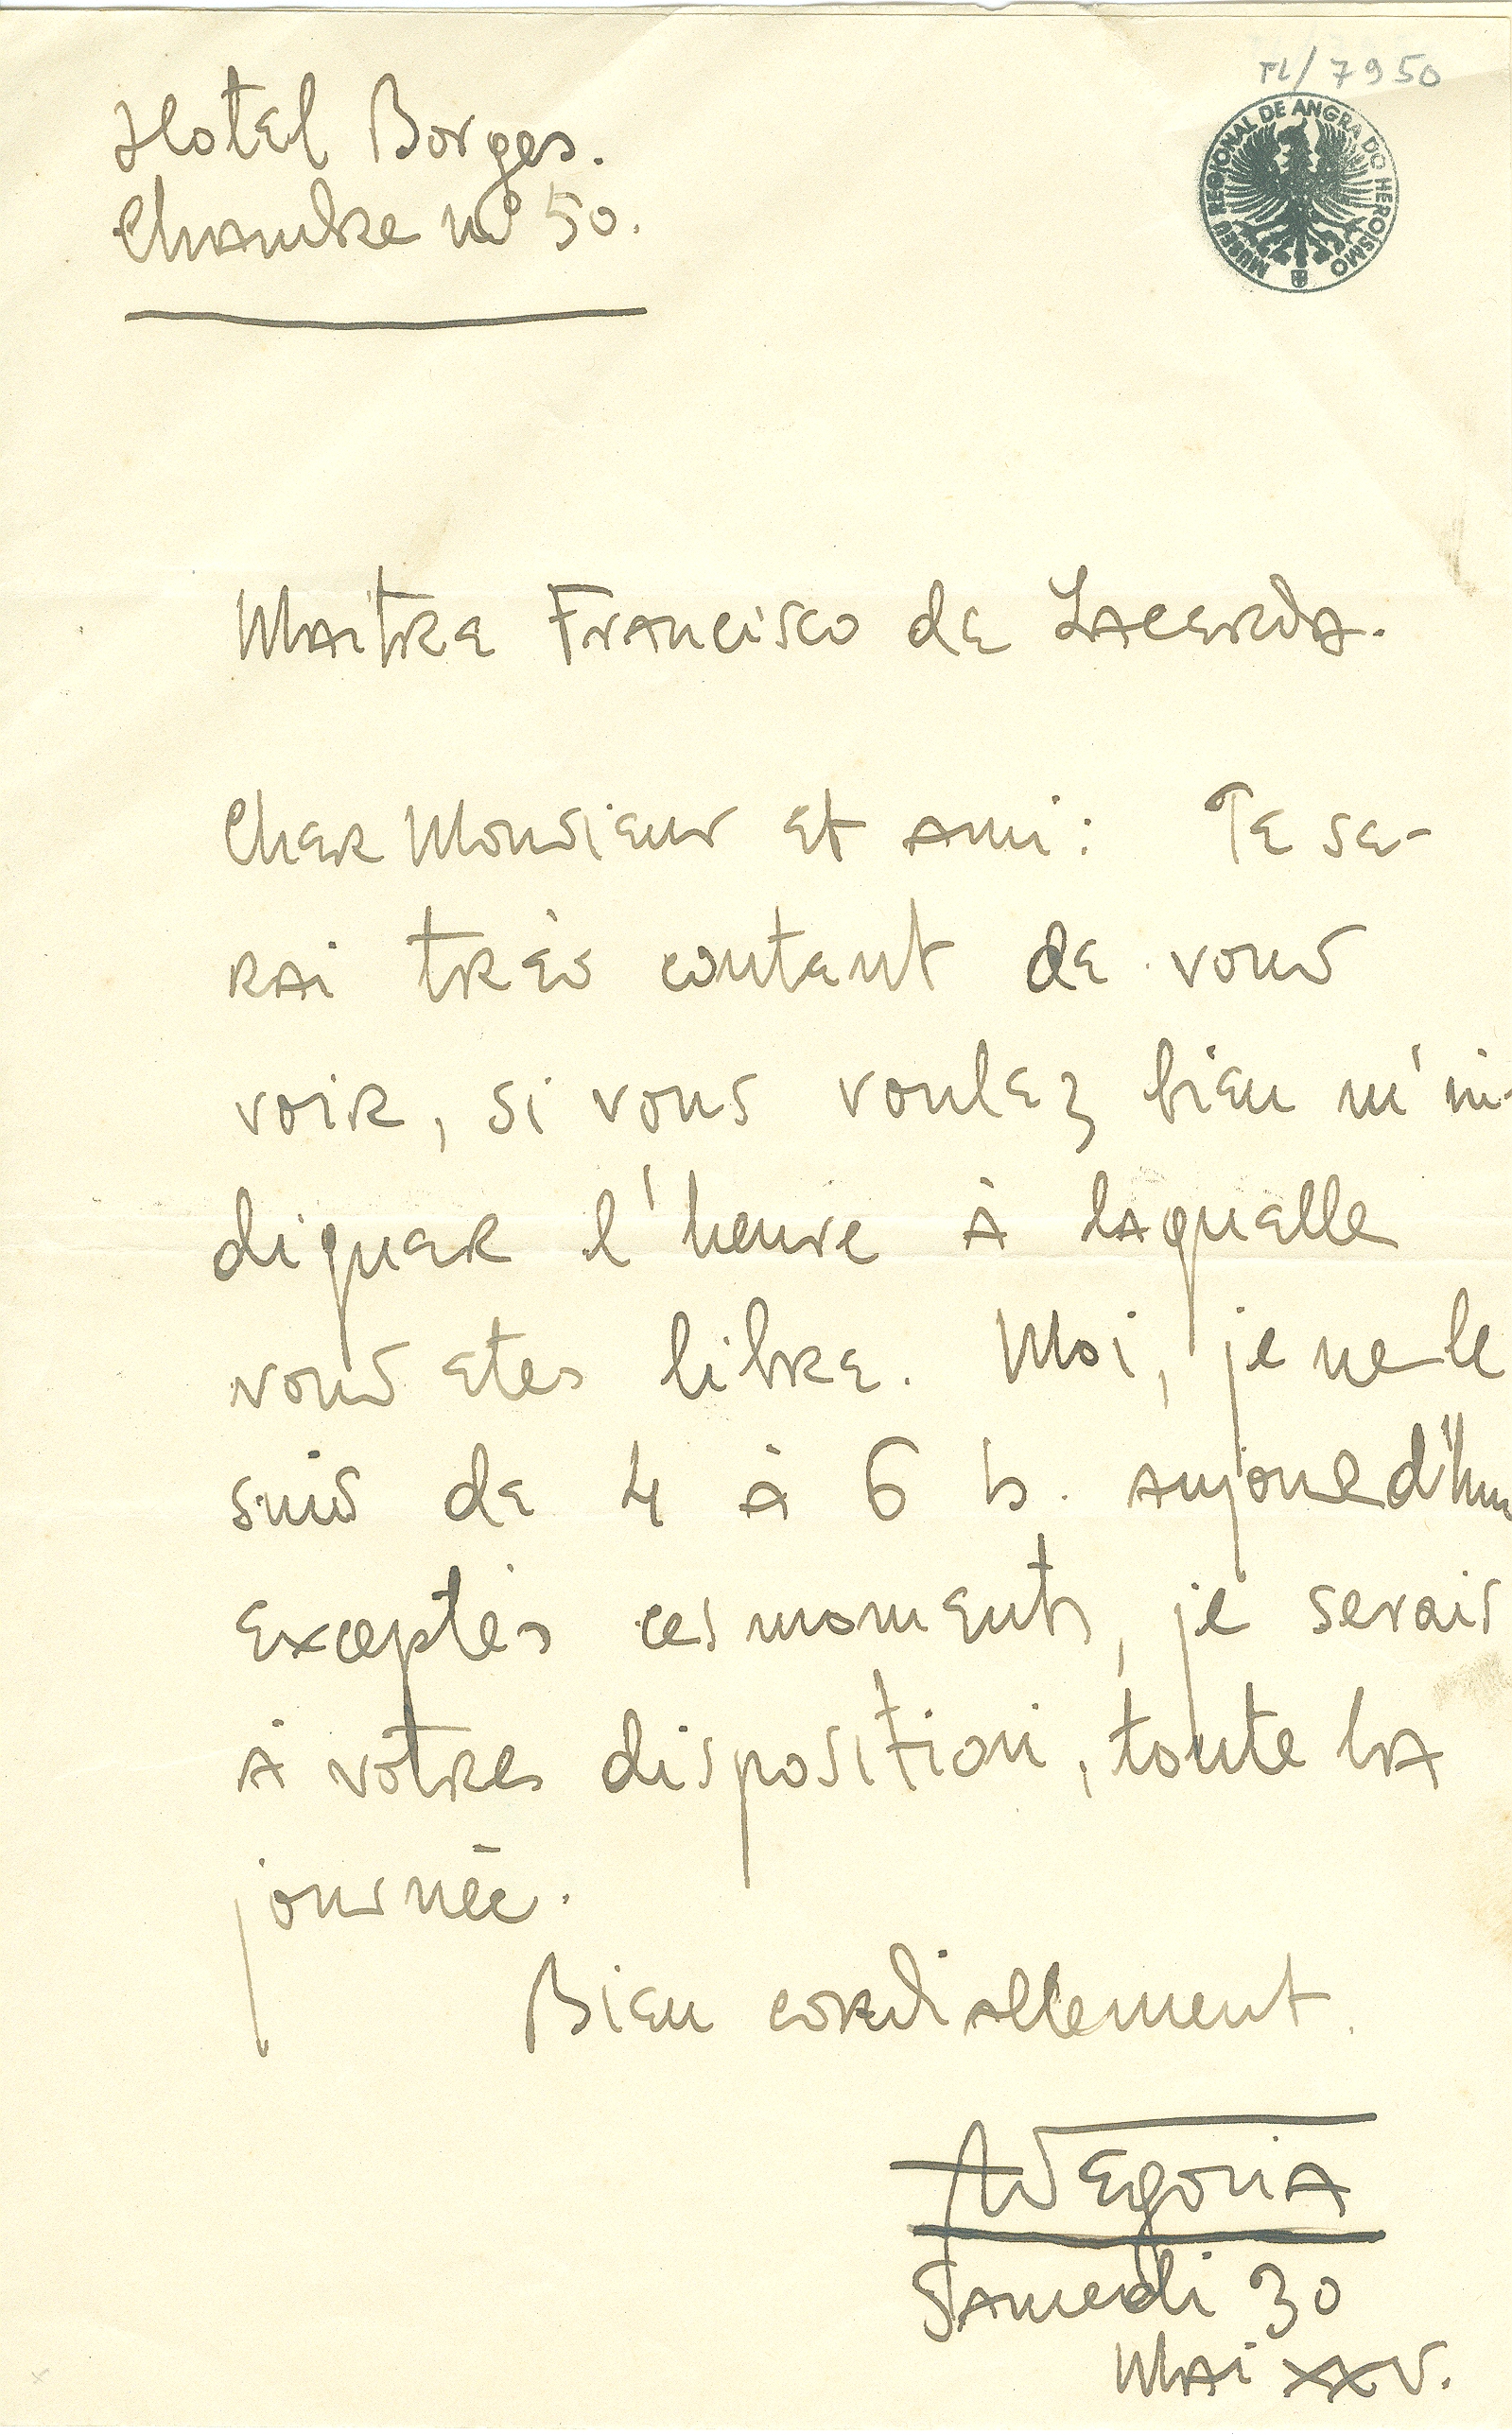 FL/7950
MUSEU REGIONAL DE ANGRA DO HEROISMO
Hotel Borges.
Chambre nº 50.
Maitre Francisco de Lacerda.
Cher Monsieur et ami: Je se-
rai très content de vous
voir, si vous voulez bien m'in-
diquer l'heure à laquelle
vous etes libre. Moi, je ne le
suis de 4 à 6 h. aujourd'hui
exceptés ces moments, je serais
à votres disposition, toute la
journée.
Bien cordiallement.
Samedi 30
Mai XXV.